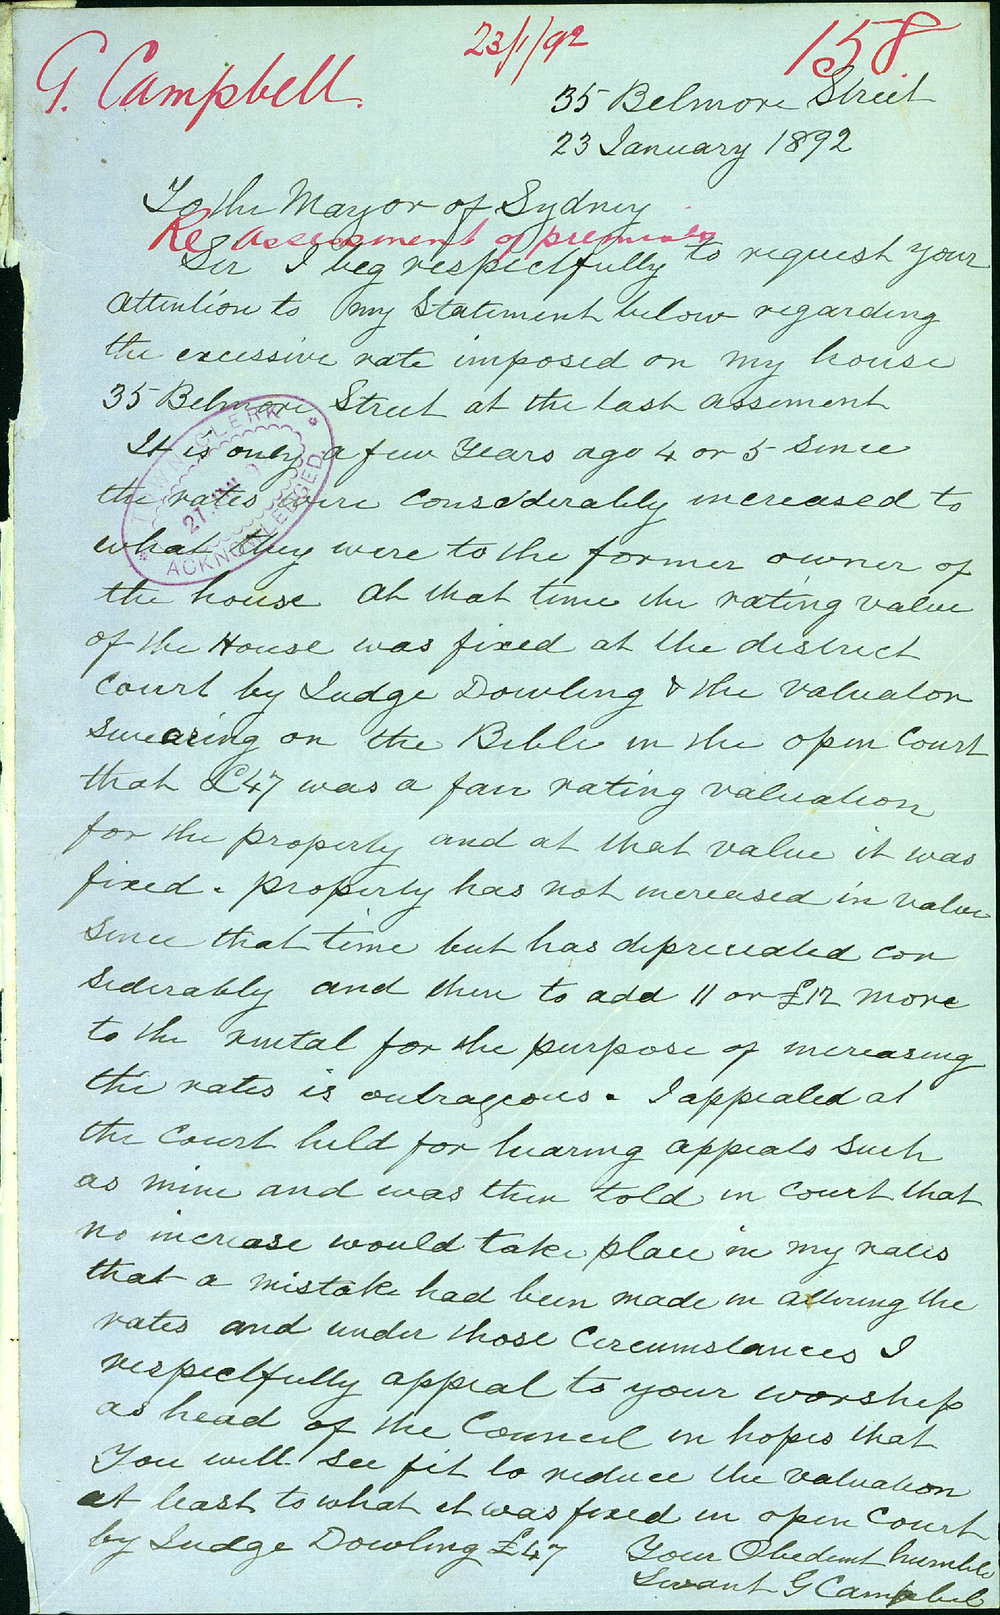 G. Campbell.
23/1/92
158
35 Belmore Street
23 January 1892
To the Mayor of Sydney
Re Assessment of premises
Sir I beg respectfully to request your
attention to my Statement below regarding
the excessive rate imposed on my house
35 Belmore Street at the last assement
It is only a few Years ago 4 or 5 since
the rates were considerably increased to
what they were to the former owner of
the house At that time the rating value
of the House was fixed at the district
Court by Judge Dowling & the valuator
swearing on the Bible in the open Court
that £47 was a fair rating valuation
for the property and at that value it was
fixed. property has not increased in value
since that time but has depreciated con
siderably and then to add 11 or £12 more
to the rental for the purpose of increasing
the rates is outrageous. I appealed at
the Court held for hearing appeals such
as mine and was then told in Court that
no increase would take place in my rates
that a mistake had been made in altering the
rates and under those Circumstances I
respectfully appeal to your worship
as head of the Council in hopes that
You will see fit to reduce the valuation
at least to what it was fixed in open Court
by Judge Dowling £47
Your Obedient humble
Servant G Campbel
TOWN CLERK
27 JAN
ACKNOWLEDGED